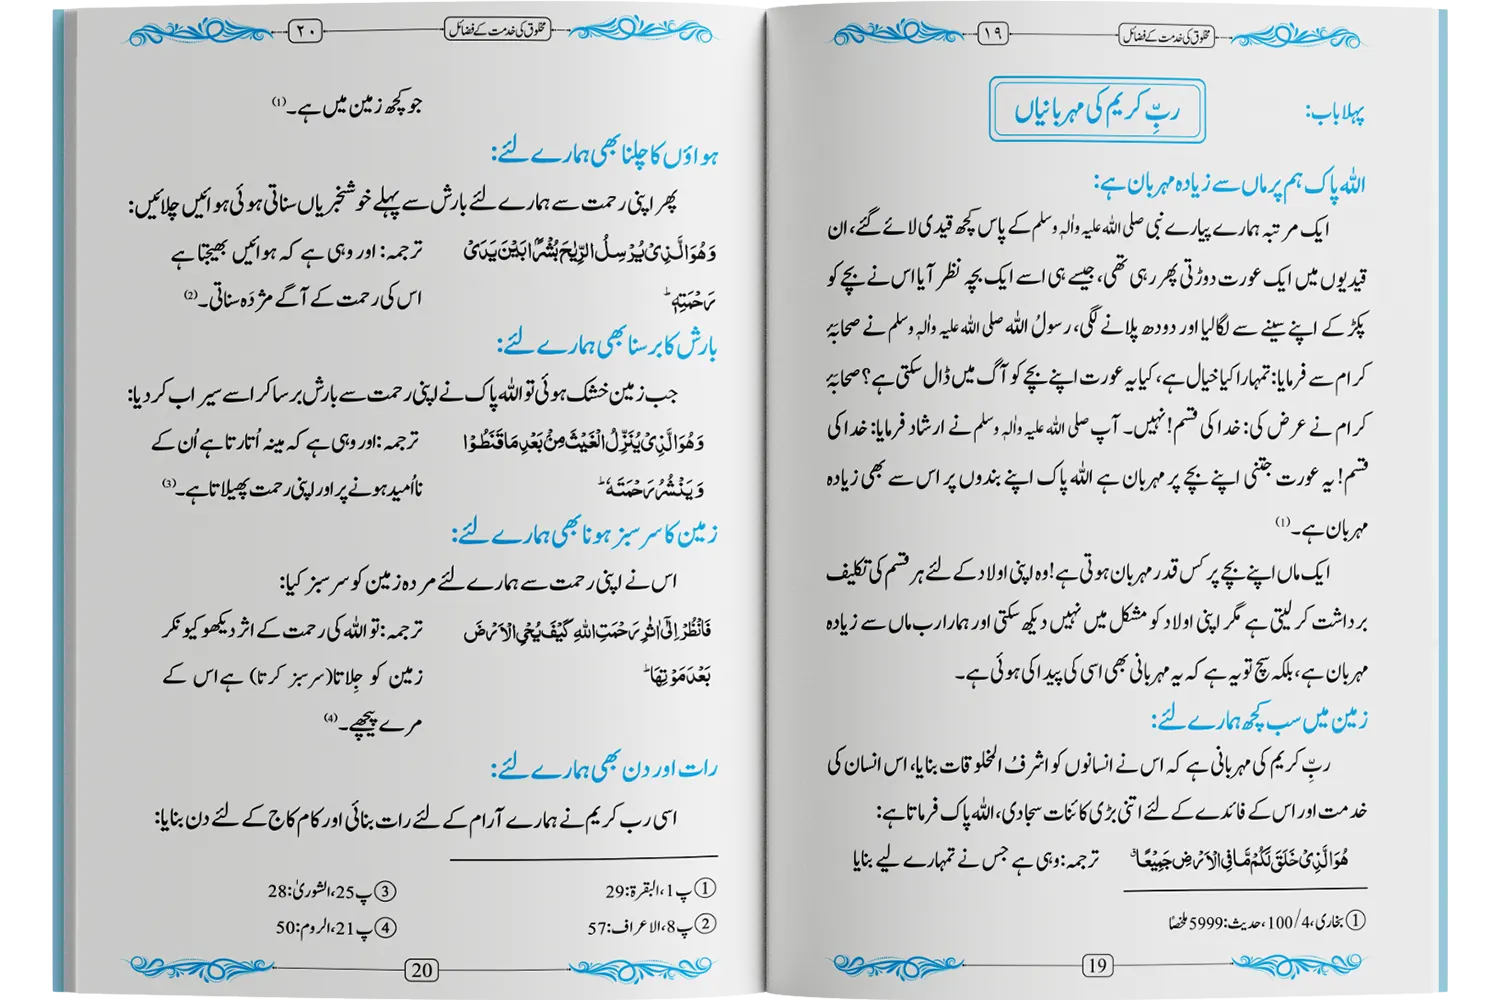 مخلوق کی خدمت کے فضائل
۱۹
پہلا باب:
ربِّ کریم کی مہربانیاں
اللہ پاک ہم پر ماں سے زیادہ مہربان ہے:
ایک مرتبہ ہمارے پیارے نبی صلی اللہ علیہ واٰلہٖ وسلم کے پاس کچھ قیدی لائے گئے، ان
قیدیوں میں ایک عورت دوڑتی پھر رہی تھی، جیسے ہی اسے ایک بچہ نظر آیا اس نے بچے کو
پکڑ کے اپنے سینے سے لگالیا اور دودھ پلانے لگی، رسولُ اللہ صلی اللہ علیہ واٰلہٖ وسلم نے صحابۂ
کرام سے فرمایا: تمہارا کیا خیال ہے، کیا یہ عورت اپنے بچے کو آگ میں ڈال سکتی ہے؟ صحابۂ
کرام نے عرض کی: خدا کی قسم! نہیں۔ آپ صلی اللہ علیہ واٰلہٖ وسلم نے ارشاد فرمایا: خدا کی
قسم! یہ عورت جتنی اپنے بچے پر مہربان ہے اللہ پاک اپنے بندوں پر اس سے بھی زیادہ
مہربان ہے۔ (1)
ایک ماں اپنے بچے پر کس قدر مہربان ہوتی ہے! وہ اپنی اولاد کے لئے ہر قسم کی تکلیف
برداشت کرلیتی ہے مگر اپنی اولاد کو مشکل میں نہیں دیکھ سکتی اور ہمارا رب ماں سے زیادہ
مہربان ہے، بلکہ سچ تو یہ ہے کہ یہ مہربانی بھی اسی کی پیدا کی ہوئی ہے۔
زمین میں سب کچھ ہمارے لئے:
ربِّ کریم کی مہربانی ہے کہ اس نے انسانوں کو اشرفُ المخلوقات بنایا، اس انسان کی
خدمت اور اس کے فائدے کے لئے اتنی بڑی کائنات سجادی، اللہ پاک فرماتا ہے:
هُوَ الَّذِیْ خَلَقَ لَكُمْ مَّا فِی الْاَرْضِ جَمِیْعًاۗ ترجمہ: وہی ہے جس نے تمہارے لیے بنایا
① بخاری، 4/100، حدیث: 5999 ملخصًا
19
مخلوق کی خدمت کے فضائل
۲۰
جو کچھ زمین میں ہے۔ (1)
ہواؤں کا چلنا بھی ہمارے لئے:
پھر اپنی رحمت سے ہمارے لئے بارش سے پہلے خوشخبریاں سناتی ہوئی ہوائیں چلائیں:
وَ هُوَ الَّذِیْ یُرْسِلُ الرِّیٰحَ بُشْرًۢا بَیْنَ یَدَیْ ترجمہ: اور وہی ہے کہ ہوائیں بھیجتا ہے
رَحْمَتِهٖؕ اس کی رحمت کے آگے مژدَہ سناتی۔ (2)
بارش کا برسنا بھی ہمارے لئے:
جب زمین خشک ہوئی تو اللہ پاک نے اپنی رحمت سے بارش برسا کر اسے سیراب کردیا:
وَ هُوَ الَّذِیْ یُنَزِّلُ الْغَیْثَ مِنْۢ بَعْدِ مَا قَنَطُوْا ترجمہ: اور وہی ہے کہ مینہ اُتارتا ہے اُن کے
وَ یَنْشُرُ رَحْمَتَهٗؕ نااُمید ہونے پر اور اپنی رحمت پھیلاتا ہے۔ (3)
زمین کا سرسبز ہونا بھی ہمارے لئے:
اس نے اپنی رحمت سے ہمارے لئے مردہ زمین کو سرسبز کیا:
فَانْظُرْ اِلٰۤى اٰثٰرِ رَحْمَتِ اللّٰهِ كَیْفَ یُحْیِ الْاَرْضَ ترجمہ: تو اللہ کی رحمت کے اثر دیکھو کیونکر
بَعْدَ مَوْتِهَاؕ زمین کو جِلاتا (سرسبز کرتا) ہے اس کے
مرے پیچھے۔ (4)
رات اور دن بھی ہمارے لئے:
اسی رب کریم نے ہمارے آرام کے لئے رات بنائی اور کام کاج کے لئے دن بنایا:
① پ1، البقرۃ: 29
② پ8، الاعراف: 57
③ پ25، الشوریٰ: 28
④ پ21، الروم: 50
20